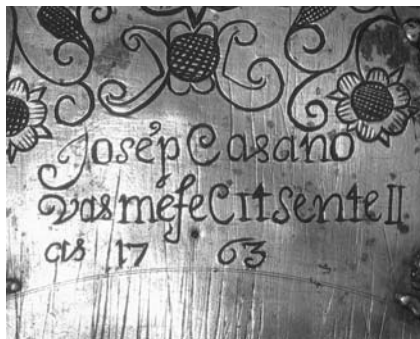 Josép Casano
vas méfeCitsenteII
as 17 63